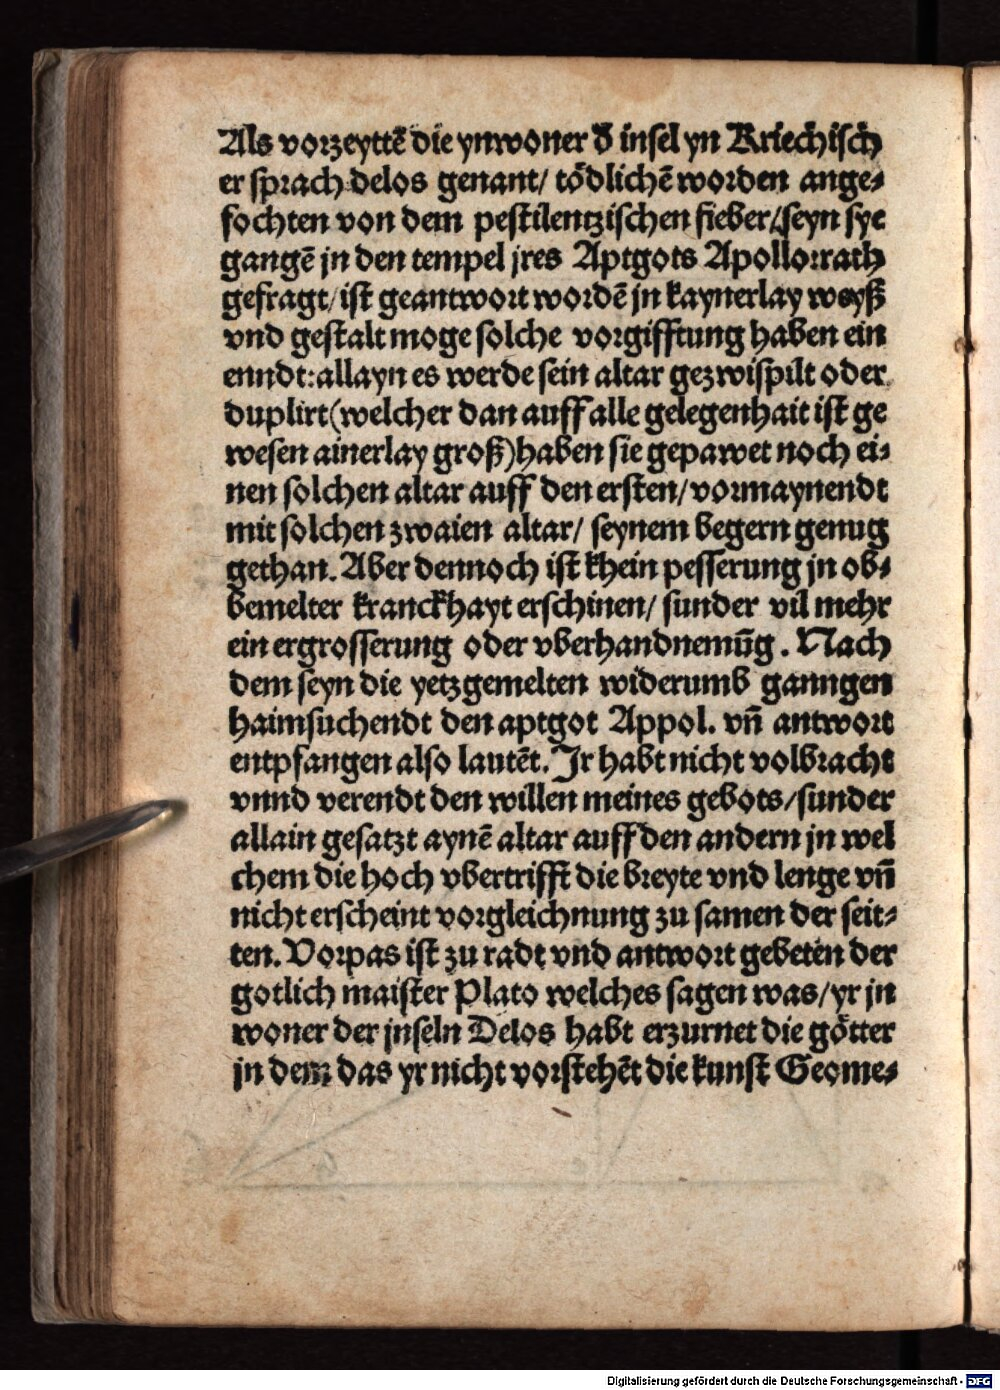 Als vorzeyttē die ynwoner d̄ insel yn Kriechisch
er sprach delos genant/ tödlichē worden ange⸗
fochten von dem pestilentzischen fieber/ seyn sye
gangē jn den tempel jres Aptgots Apollo: rath
gefragt/ ist geantwort wordē jn kaynerlay weyß
vnd gestalt moge solche vorgifftung haben ein
enndt: allayn es werde sein altar gezwispilt oder
duplirt (welcher dan auff alle gelegenhait ist ge
wesen ainerlay groß) haben sie gepawet noch ei⸗
nen solchen altar auff den ersten/ vormaynendt
mit solchen zwaien altar/ seynem begern genug
gethan. Aber dennoch ist khein pesserung jn ob⸗
bemelter kranckhayt erschinen/ sunder vil mehr
ein ergrosserung oder vberhandnemūg. Nach
dem seyn die yetzgemelten widerumb ganngen
haimsuchendt den aptgot Appol. vn̄ antwort
entpfangen also lautēt. Jr habt nicht volbracht
vnnd verendt den willen meines gebots/ sunder
allain gesatzt aynē altar auff den andern jn wel
chem die hoch vbertrifft die breyte vnd lenge vn̄
nicht erscheint vorgleichnung zu samen der seit⸗
ten. Vorpas ist zu radt vnd antwort gebeten der
gotlich maister Plato welches sagen was/ yr jn
woner der jnseln Delos habt erzurnet die götter
jn dem das yr nicht vorstehēt die kunst Geome⸗
Digitalisierung gefördert durch die Deutsche Forschungsgemeinschaft - DFG